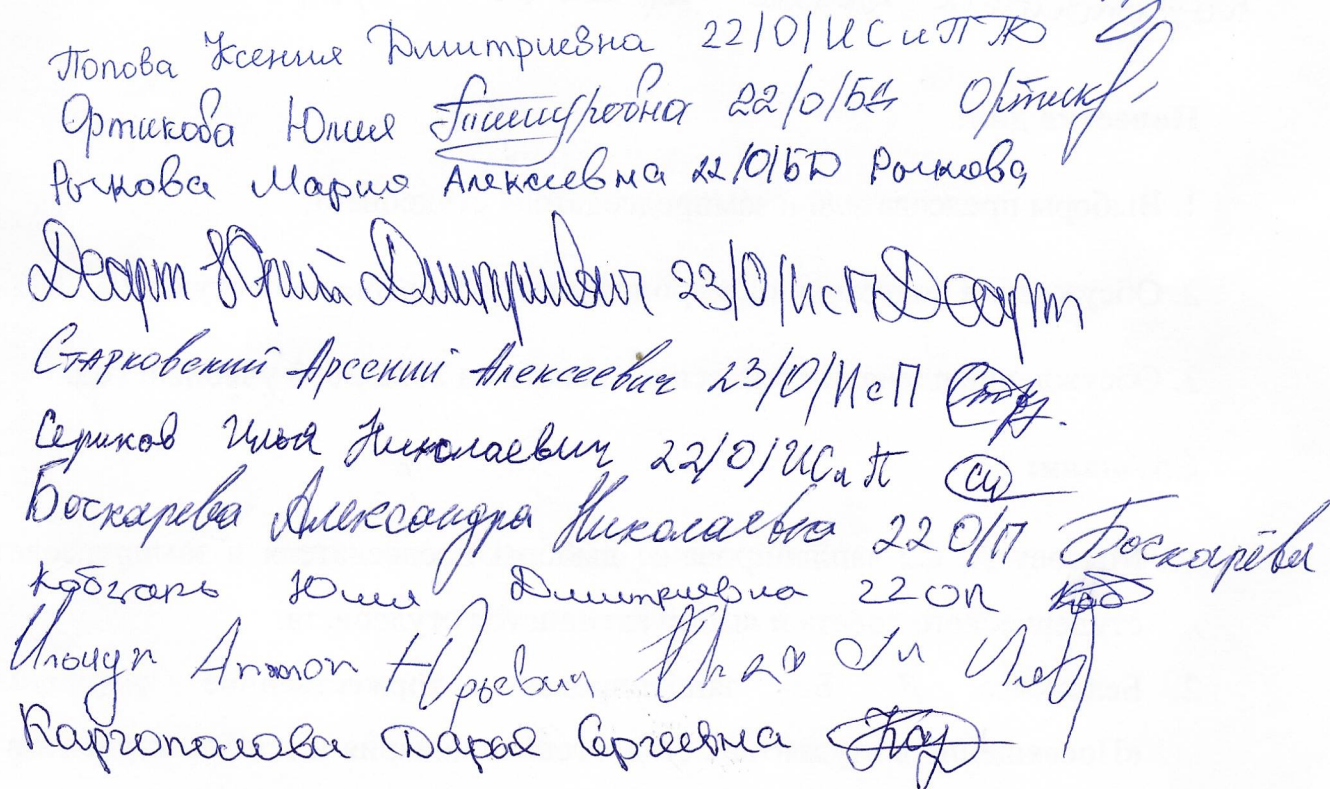 Попова Ксения Дмитриевна 22/О/ИСиП ТЮ
Ортикова Юлия Тимуровна 22/О/БД Ортик
Рычкова Мария Алексеевна 22/О/БД Рычкова
Деарт Юрий Дмитриевич 23/О/ИсП Деарт
Старковский Арсений Алексеевич 23/О/ИсП
Сериков Илья Николаевич 22/О/ИСиП Си
Боскарева Александра Николаевна 22 О/П Боскарёва
Кобзарь Юлия Дмитриевна 22 ОП Коб
Антон Юрьевич
Каргополова Дарья Сергеевна Кар
1. Выборы председателя